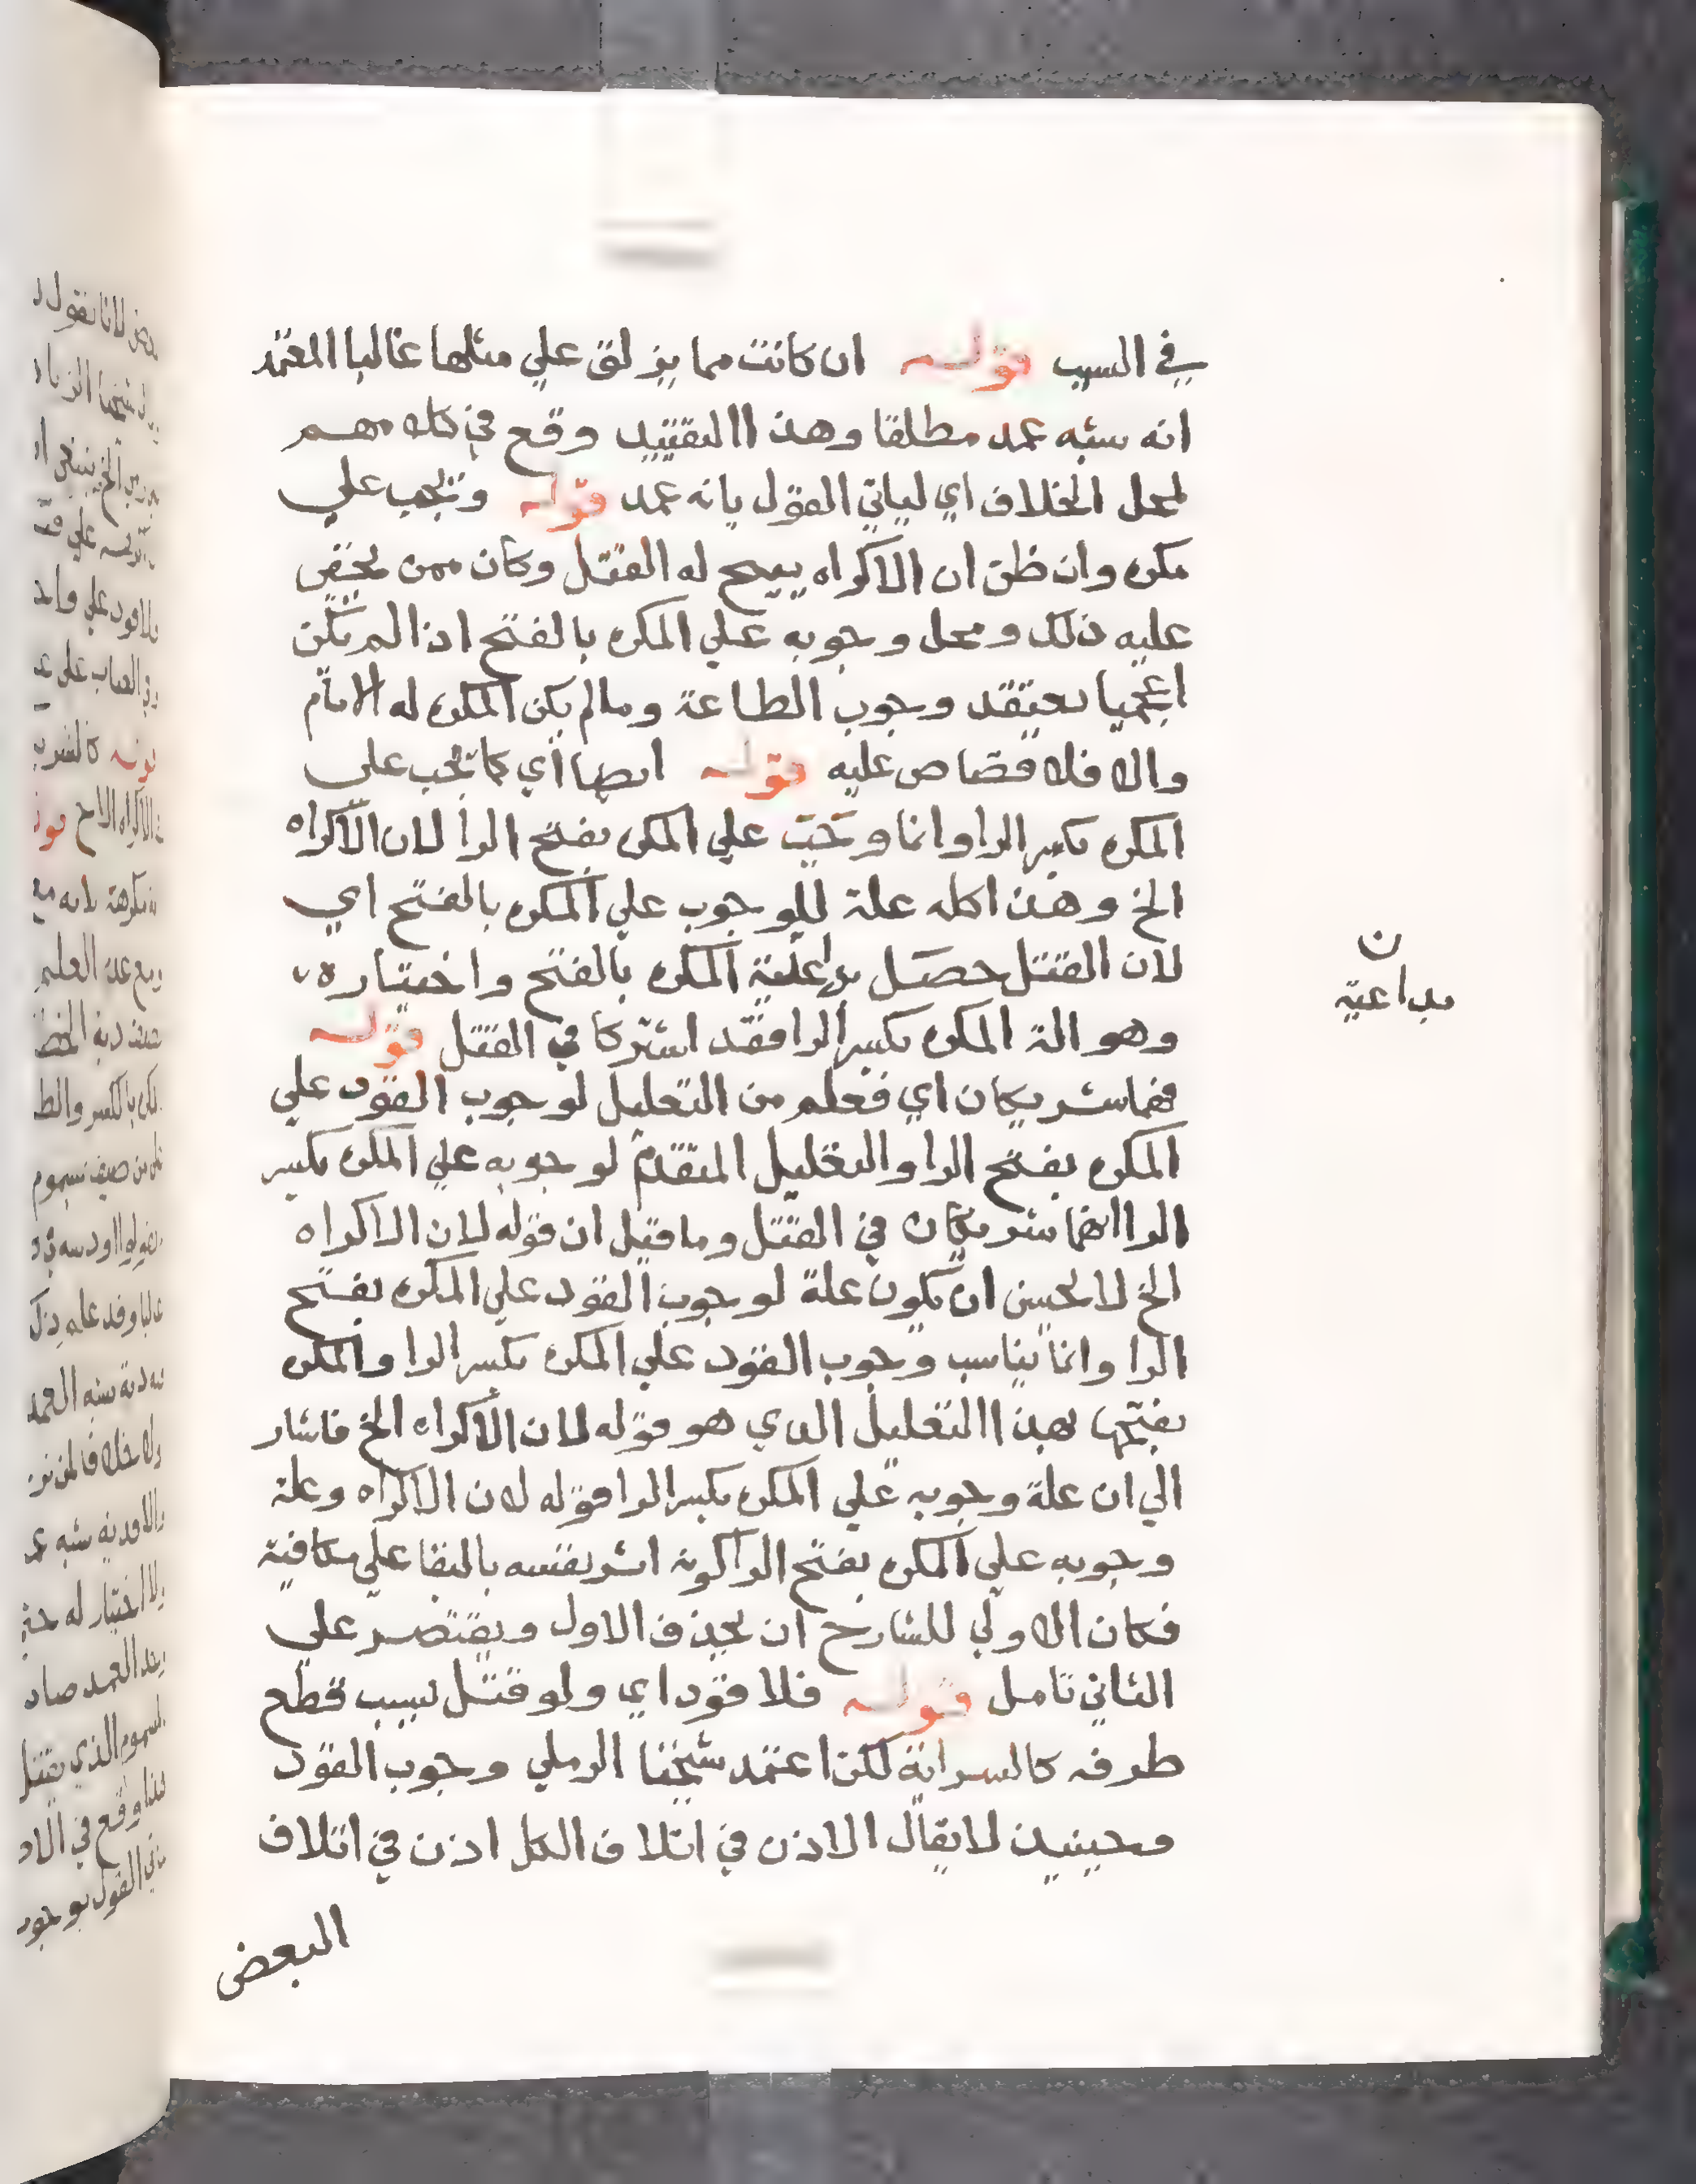 في السبب قوله ان كانت مما يزلق علي مثلها غالبا المعتمد
انه شبه عمد مطلقا وهذا التقييد وقع في كلامهم
لمحل الخلاف اي لياتي القول بانه عمد قوله وتجب علي
مكره وان ظن ان الاكراه يبيح له القتل وكان ممن يخفي
عليه ذلك ومحل وجوبه علي المكره بالفتح اذا لم يكن
اعجميا يعتقد وجوب الطاعة وما لم يكن المكره له الامام
والا فلا قصاص عليه قوله ايضا اي كما تجب علي
المكره بكسر الرا وانما وجبت علي المكره بفتح الرا لان الاكراه
الخ وهذا كله علة للوجوب علي المكره بالفتح اي
لان القتل حصل بداعية المكره بالفتح واختياره
وهو الة المكره بكسر الرا فقد اشتركا في القتل قوله
فهما شريكان اي فعلم من التعليل لوجوب القود علي
المكره بفتح الرا والتعليل المتقدم لوجوبه علي المكره بكسر
الرا انهما شريكان في القتل وما قيل ان قوله لان الاكراه
الخ لا يحسن ان يكون علة لوجوب القود علي المكره بفتح
الرا وانما يناسب وجوب القود علي المكره بكسر الرا والمكره
بفتحها بهذا التعليل الذي هو قوله لان الاكراه الخ فاشار
الي ان علة وجوبه علي المكره بكسر الرا قوله لان الاكراه وعلة
وجوبه علي المكره بفتح الرا كونه اثر نفسه بالبقا علي مكافيه
فكان الاولي للشارح ان يحذف الاول ويقتصر علي
الثاني تامل قوله فلا قود اي ولو قتل بسبب قطع
طرفه كالسراية لكن اعتمد شيخنا الرملي وجوب القود
وحينيذ لا يقال الاذن في اتلاف الكل اذن في اتلاف
البعض
ن
بداعية